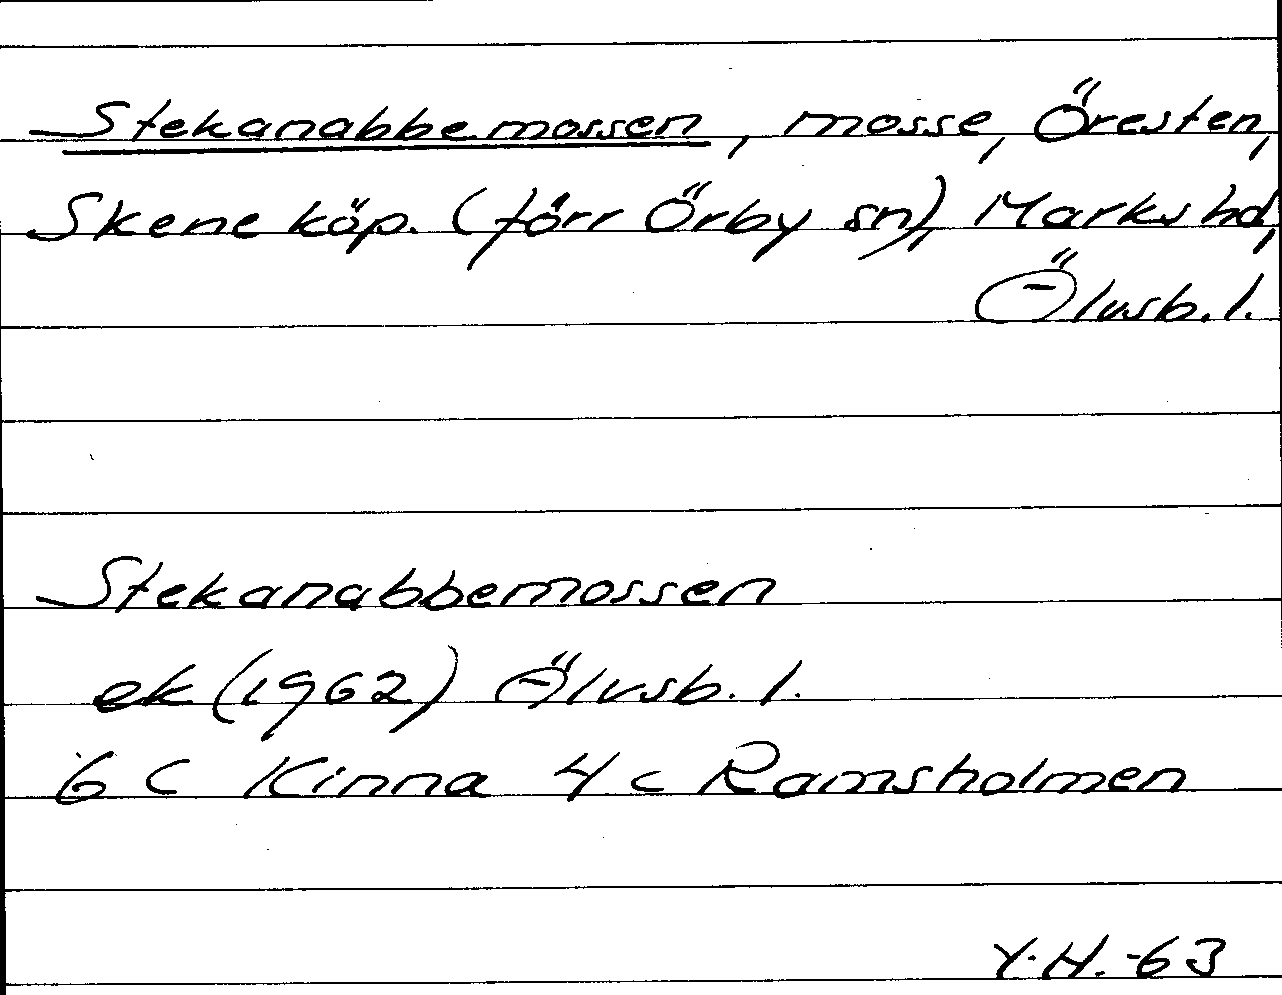 Stekanabbemossen, mosse, Öresten,
Skene köp. (förr Örby sn), Marks hd,
Älvsb. l.
Stekanabbemossen
ek (1962) Älvsb. l.
6 C Kinna 4 c Ramsholmen
Y.H. -63